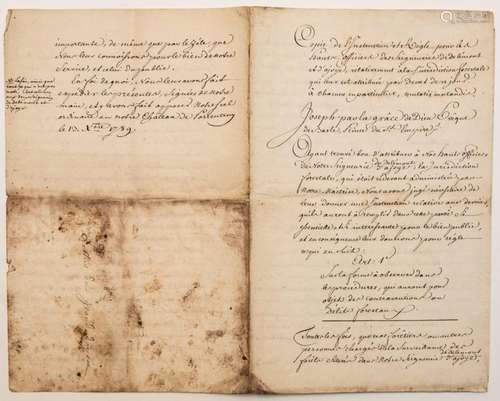 importante, de même que par le Zèle que
Nous leur connoissons pour le bien de notre
Service et celui du public.
En foi de quoi Nous leur avons fait
expédier les présentes, Signées de Notre
main, et y avons fait apposer Notre Scel
ordinaire au notre Château de Porrentruy
le 13. 1789.
Copie de l'Instruction et Règle, pour les
hauts officiers des Seigneuries de Delémont
et d'ajoye, relativement à la jurisdiction forestale
qui leur est attribuée par décret de ce jourd
à chacun en particulier, mutatis mutandis
Joseph par la grâce de Dieu Evêque
de Basle, Prince du St. Empire
Ayant trouvé bon d'attribuer à Nos haut officiers
de Notre Seigneurie de Delémont
d'ajoye la jurisdiction
forestale, qui étoit ci devant administrée par
Notre Maitrise, Nous avons jugé nécessaire de
leur donner une Instruction relative aux devoirs,
qu'ils auront à remplir dans cette partie Si
essentielle et Si interressante pour le bien public,
et en conséquence leur donnons pour règle
ce qui en Suit.
Art. 1er
Sur la forme à observer dans
les procédures, qui auront pour
objet des contraventions ou
délit forestaux
Toutes les fois, que nos forêtiers ou autres
personnes chargées de la Surveillance des
forêts Situées dans Notre Seigneurie de delémont
d'ajoye